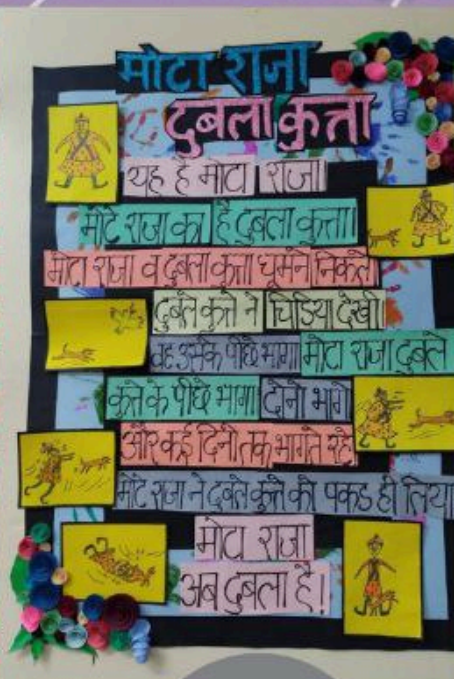 मोटा राजा
दुबला कुत्ता
यह है मोटा राजा।
मोटे राजा का है दुबला कुत्ता।
मोटा राजा व दुबला कुत्ता घूमने निकले
दुबले कुत्ते ने चिडिया देखी।
वह उसके पीछे भागा मोटा राजा दुबले
कुत्ते के पीछे भागा दोनो भागे
और कई दिनो तक भागते रहे।
मोटे राजा ने दुबले कुत्ते को पकड ही लिया
मोटा राजा
अब दुबला है!